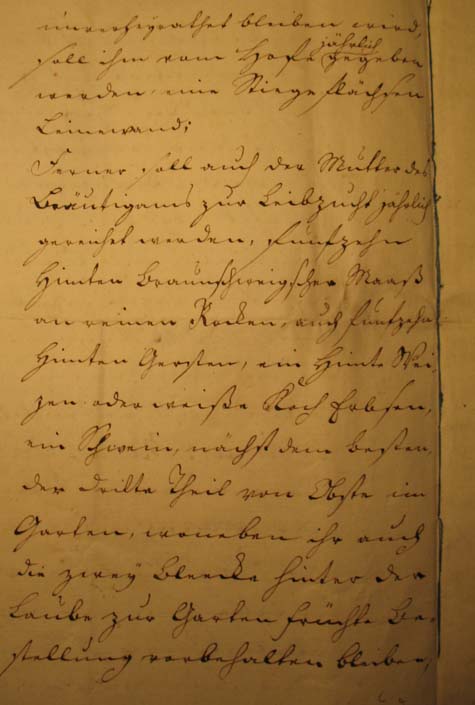 unverheyrathet bleiben wird,
soll ihm vom Hofe jährlich gegeben
werden eine Stiege flächsen
Leinewand;
Ferner soll auch der Mutter des
Bräutigams zur Leibzucht jährlich
gereichet werden, fünfzehn
Himten Braunschweigscher Maaß
an reinen Rocken, auch fünfzehn
Himten Gersten, ein Himte Wei-
zen oder weiße Koch Erbsen,
ein Schwein, nächst dem besten,
der dritte Theil von Obste im
Garten, woneben ihr auch
die zwey Bleeke hinter der
Laube zur Garten früchte Be-
stellung vorbehalten bleiben,